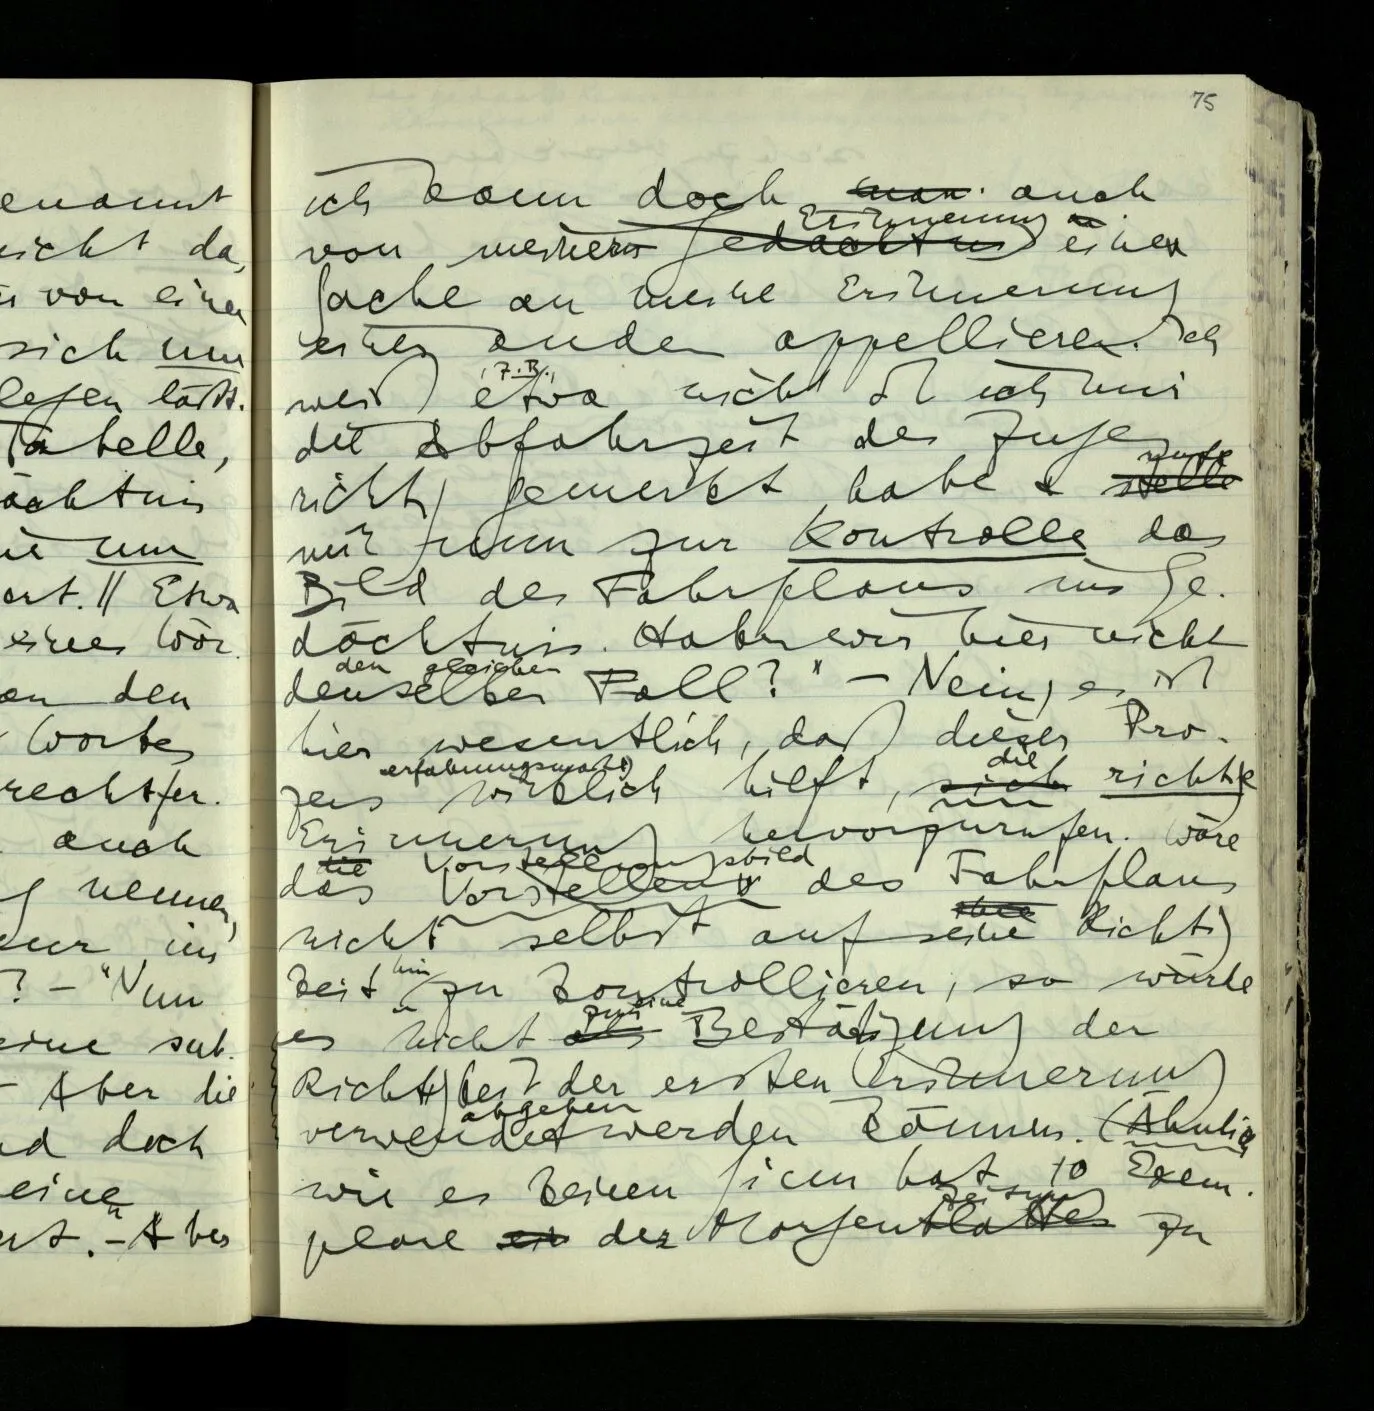 75
enannt
nicht da,
von einer
sich um
legen läßt.
Tabelle,
ächtnis
um
ert. || Etwa
eines Wör
an den
Wortes
rechtfer.
auch
nennen,
nur im
? – "Nun
eine sub.
Aber die
nd doch
eine
rt. – Aber
ich kann doch man auch
Erinnerung
von meinem Gedächtnis einer
Sache an meine Erinnerung
einer andern appellieren. Ich
, z.B.,
weiß etwa nicht ob ich mir
die Abfahrzeit des Zuges
rufe
richtig gemerkt habe & stelle
mir nun zur Kontrolle das
Bild des Fahrplans ins Ge-
dächtnis. Haben wir hier nicht
den gleichen
denselben Fall?" – Nein, es ist
hier wesentlich, daß dieser Pro-
erfahrungsmäßig die
zess wirklich hilft, sich richtige
Erinnerung hervorzurufen. Wäre
die Vorstellungsbild
das Vorstellung des Fahrplans
nicht selbst auf seine Richtig
hin
keit zu kontrollieren, so würde
zur eine
es nicht als Bestätigung der
Richtigkeit der ersten Erinnerung
abgeben
verwendet werden können. (Ähnlich
wie es keinen Sinn hat 10 Exem-
zeitung
plare der Morgenblattes zu